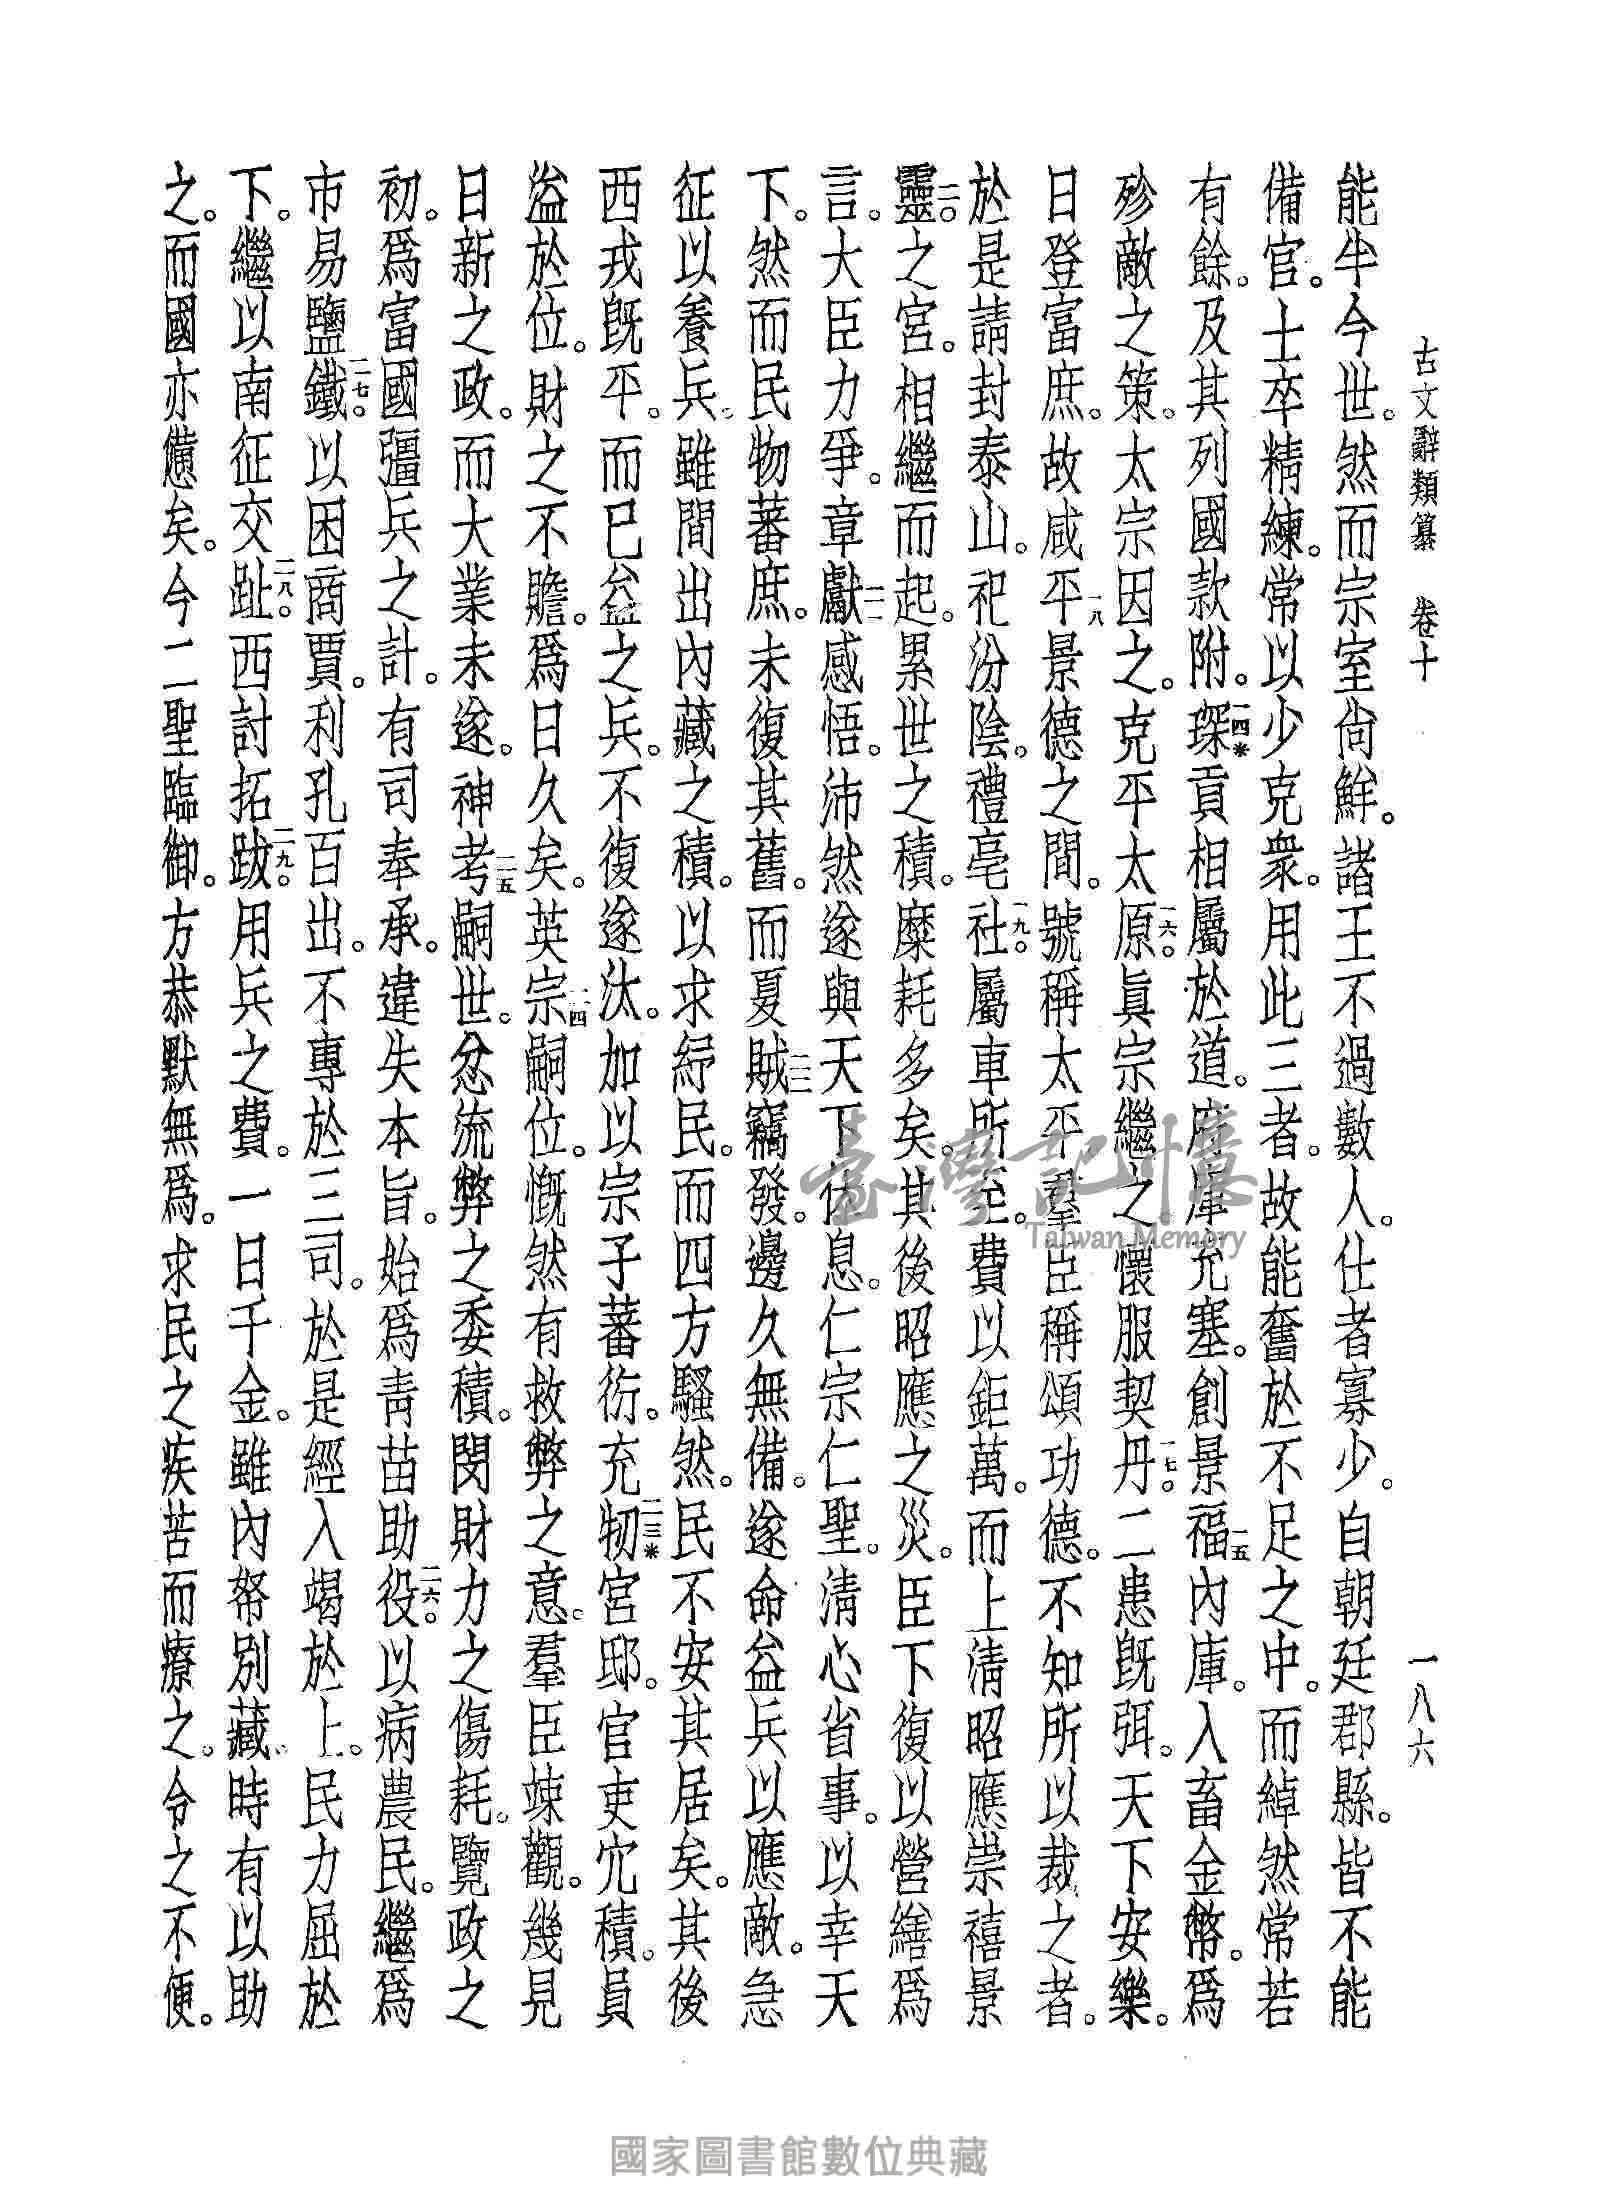 古文辭類纂　卷十　一八六
能半今世。然而宗室尙鮮。諸王不過數人。仕者寡少。自朝廷郡縣。皆不能
備官。士卒精練。常以少克衆。用此三者。故能奮於不足之中。而綽然常若
有餘。及其列國款附。琛一四※貢相屬於道。府庫充塞。創景福一五內庫。入畜金幣。爲
殄敵之策。太宗因之。克平太原一六。眞宗繼之。懷服契丹一七。二患旣弭。天下安樂。
日登富庶。故咸平一八景德之間。號稱太平。羣臣稱頌功德。不知所以裁之者。
於是請封泰山。祀汾陰。禮亳社一九。屬車所至。費以鉅萬。而上淸昭應崇禧景
靈二〇之宮。相繼而起。累世之積。糜耗多矣。其後昭應之災。臣下復以營繕爲
言。大臣力爭。章獻二一感悟。沛然遂與天下休息。仁宗仁聖。淸心省事。以幸天
下。然而民物蕃庶。未復其舊。而夏賊二二竊發。邊久無備。遂命益兵以應敵。急
征以養兵。雖間出內藏之積。以求紓民。而四方騷然。民不安其居矣。其後
西戎旣平。而已益之兵。不復遂汰。加以宗子蕃衍。充牣二三※宮邸。官吏宂積。員
溢於位。財之不贍。爲日久矣。英宗二四嗣位。慨然有救弊之意。羣臣竦觀。幾見
日新之政。而大業未遂。神考二五嗣世。忿流弊之委積。閔財力之傷耗。覽政之
初。爲富國彊兵之計。有司奉承。違失本旨。始爲靑苗助役二六。以病農民。繼爲
市易鹽鐵二七。以困商賈。利孔百出。不專於三司。於是經入竭於上。民力屈於
下。繼以南征交趾二八。西討拓跋二九。用兵之費。一日千金。雖內帑別藏。時有以助
之。而國亦憊矣。今二聖臨御。方恭默無爲。求民之疾苦而療之。令之不便。
臺灣記憶
Taiwan Memory
國家圖書館數位典藏